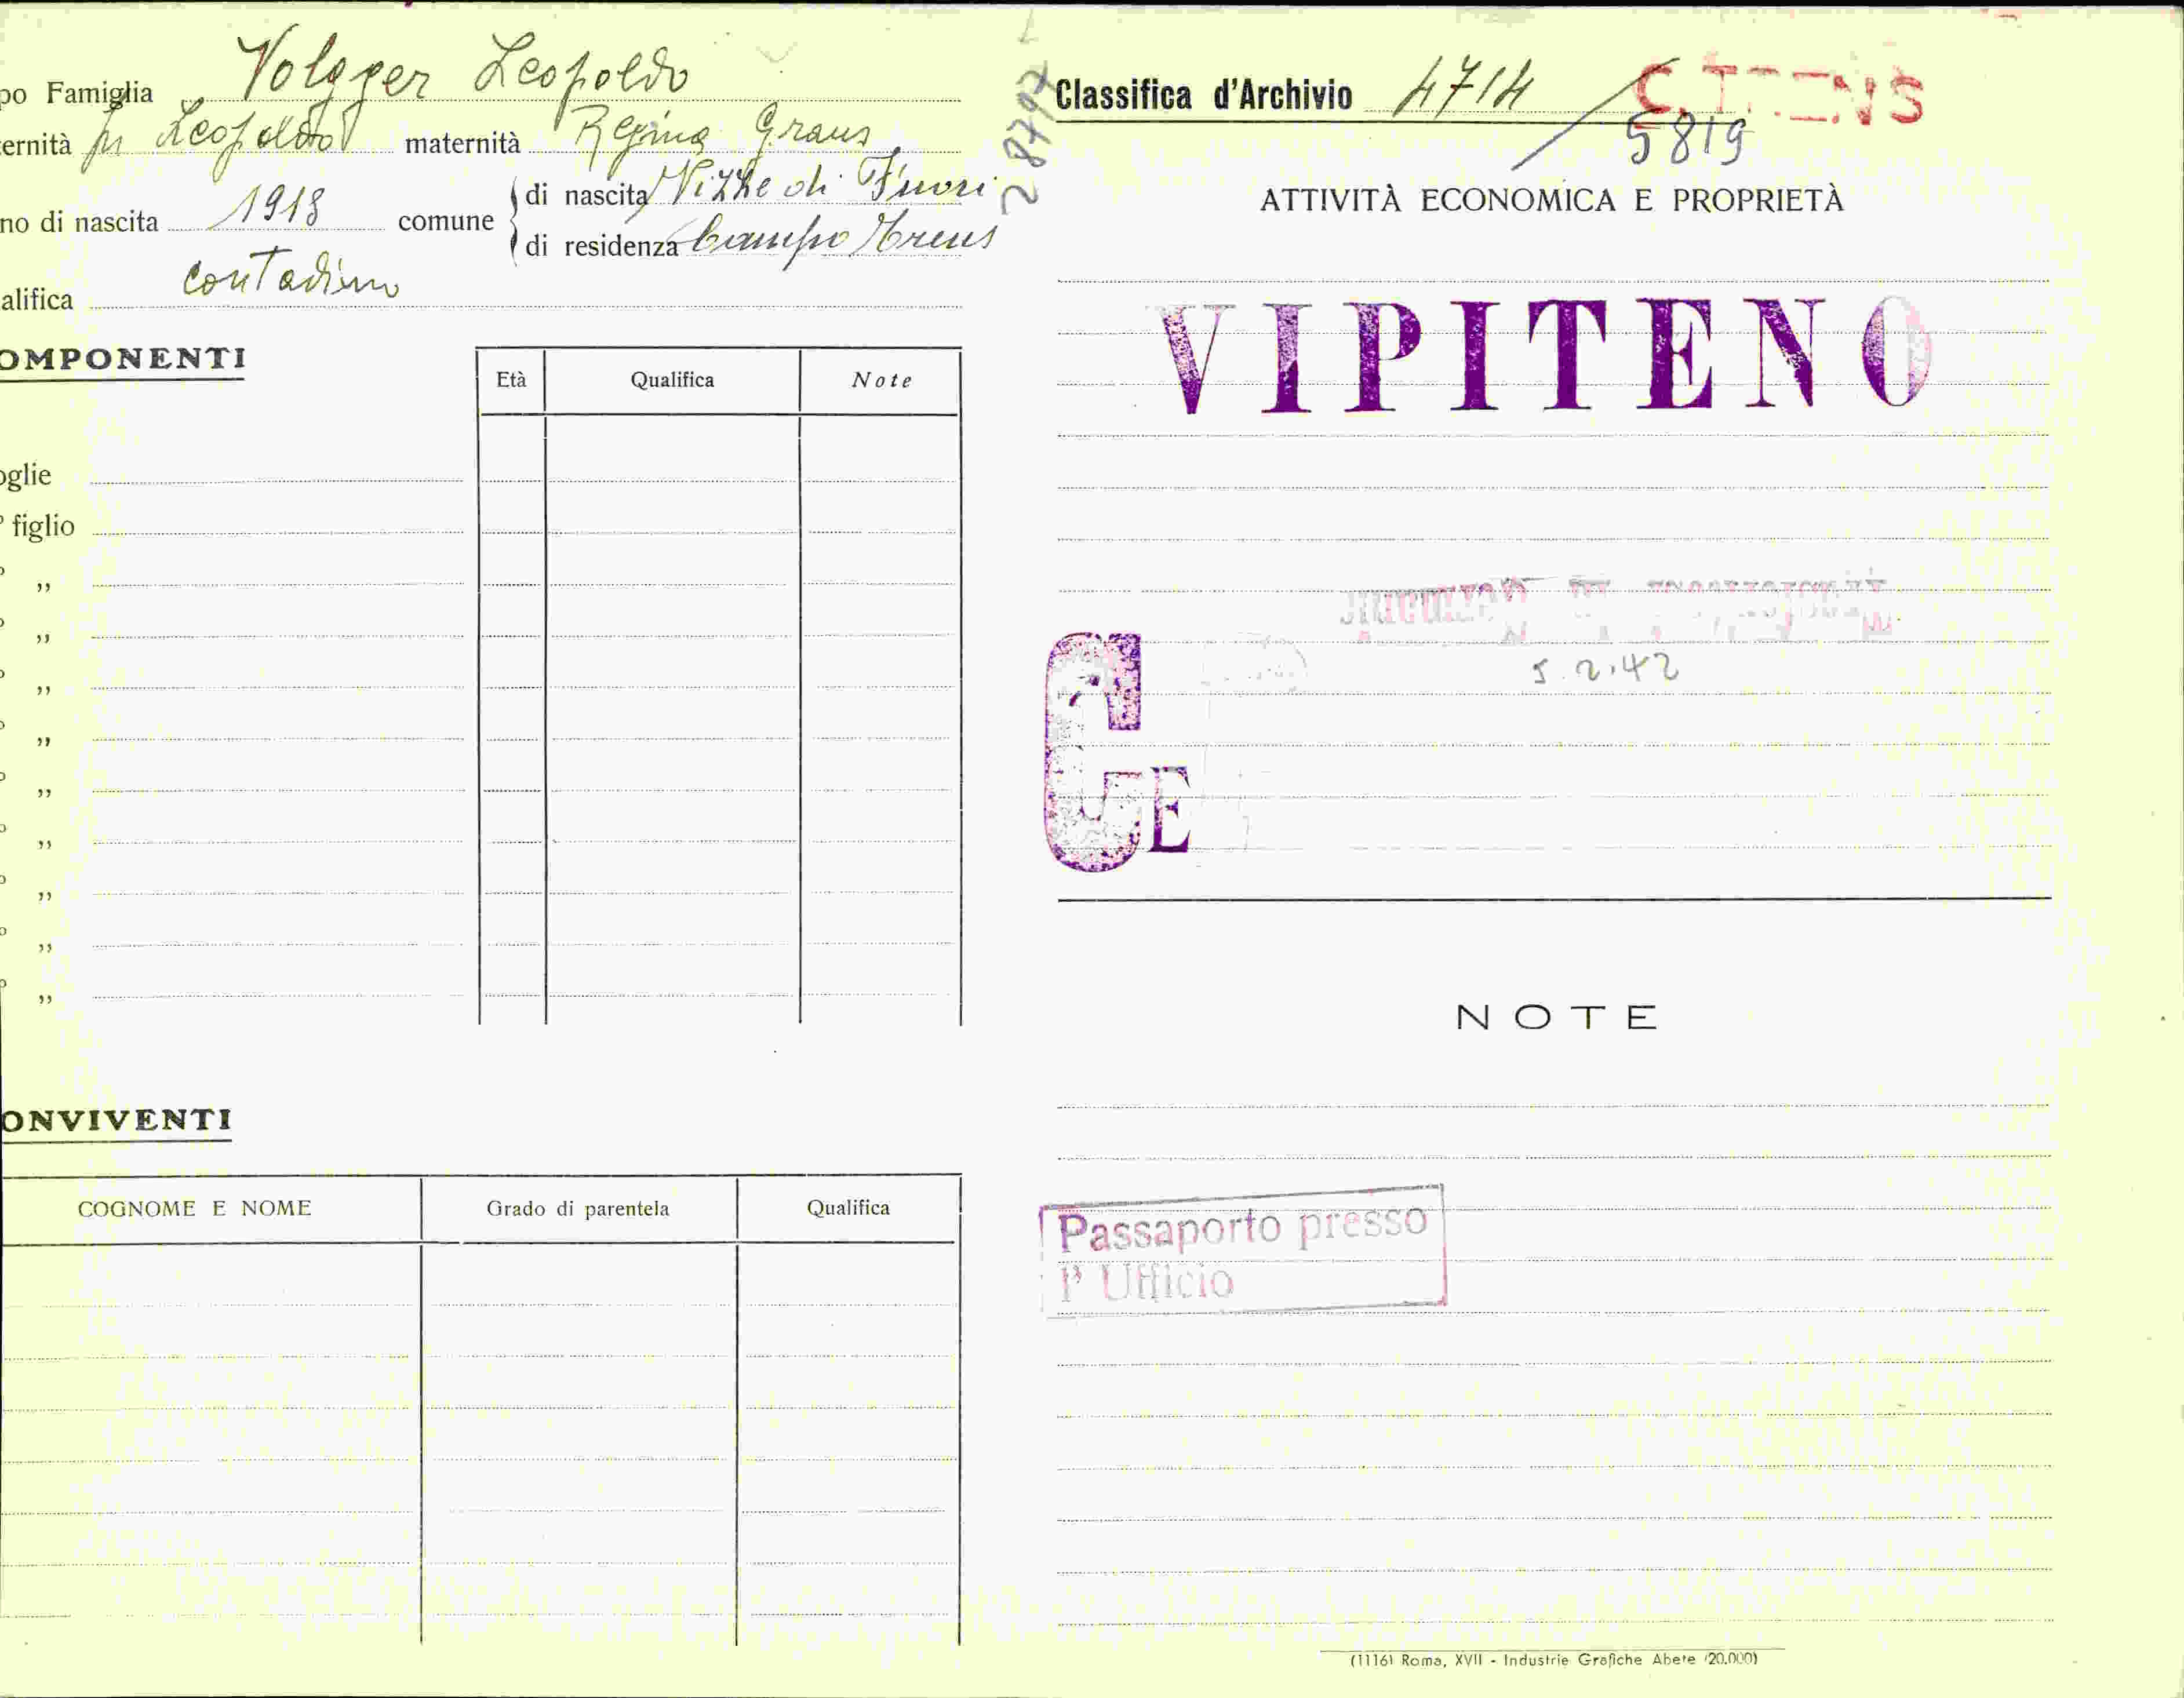 po Famiglia Volgger Leopoldo
ernità fu Leopoldo maternità Regina Graus
no di nascita 1918 comune di nascita Vizze di Fuori
di residenza Campo Trens
alifica contadino
OMPONENTI
Età Qualifica Note
oglie
° figlio
° ,,
° ,,
° ,,
° ,,
° ,,
° ,,
° ,,
° ,,
° ,,
ONVIVENTI
COGNOME E NOME Grado di parentela Qualifica
28797
Classifica d'Archivio 4714
5819
ATTIVITÀ ECONOMICA E PROPRIETÀ
VIPITENO
5.2.42
CE
NOTE
Passaporto presso
l' Ufficio
(1116) Roma, XVII - Industrie Grafiche Abete (20.000)